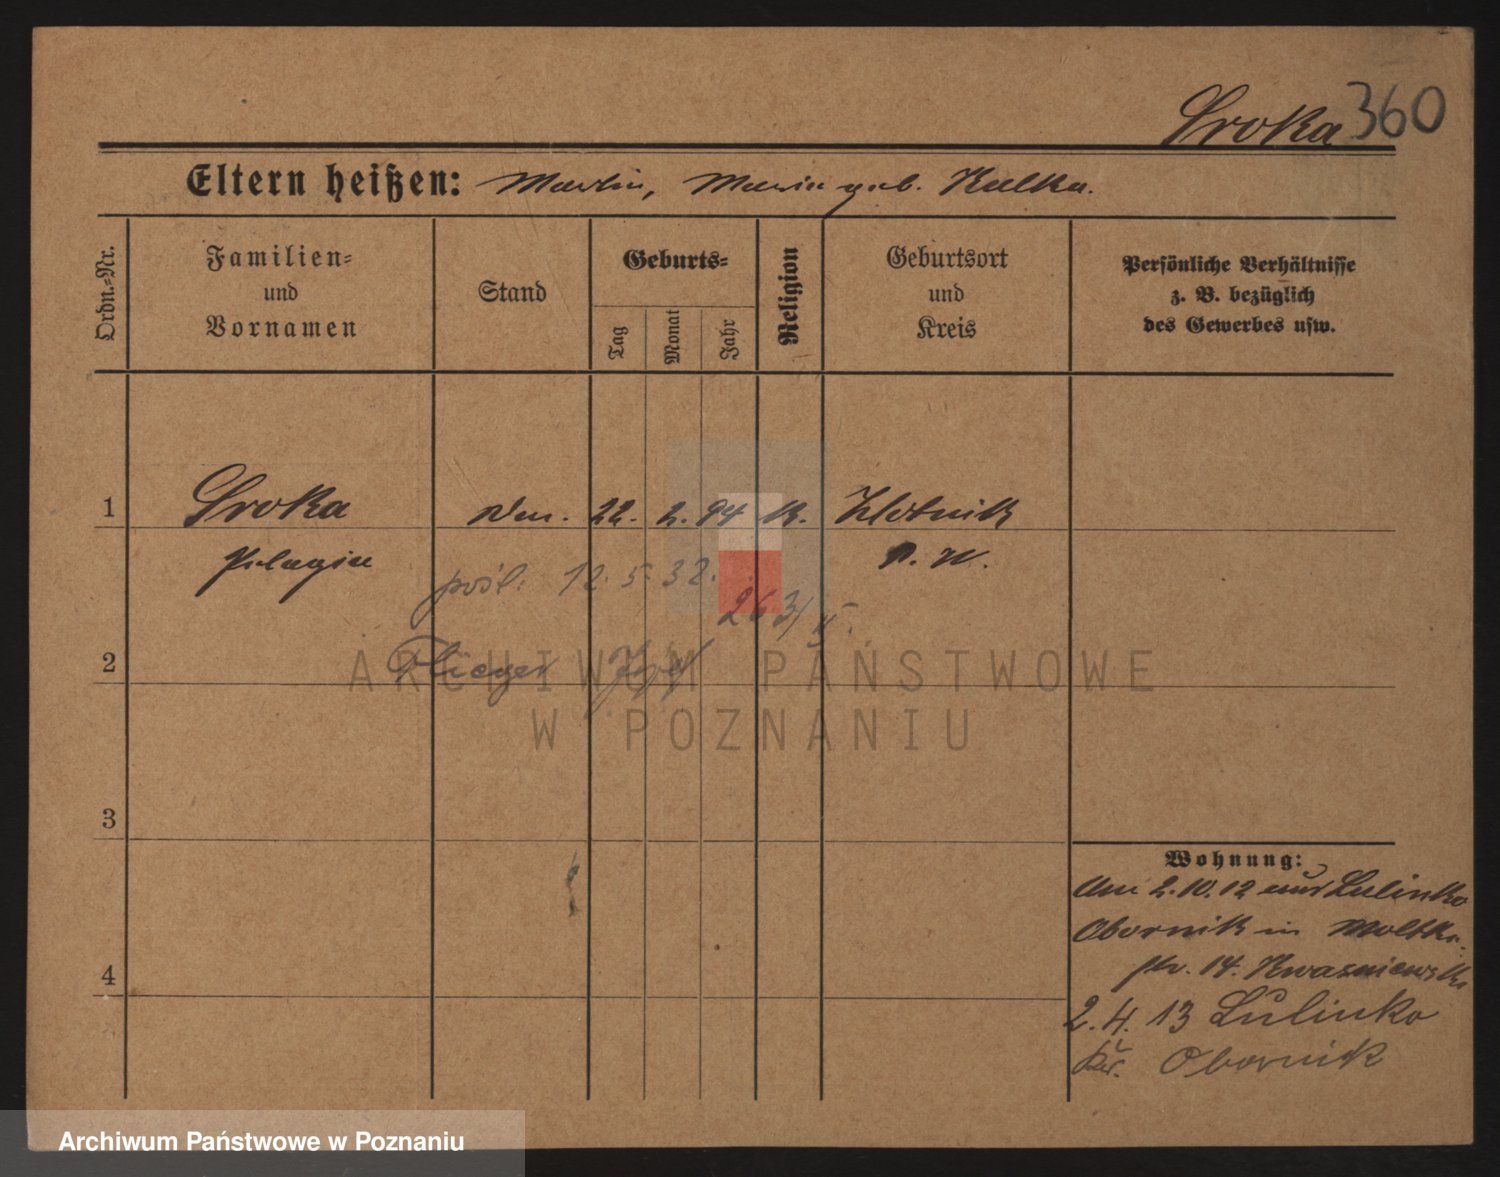 Sroka 360
Eltern heißen: Martin, Maria geb. Kulka.
Ordn.-Nr.
Familien-
und
Vornamen
Stand
Geburts-
Tag
Monat
Jahr
Religion
Geburtsort
und
Kreis
Persönliche Verhältnisse
z. B. bezüglich
des Gewerbes usw.
1 Sroka 22. 2. 94 K. Zlotnik
Pelagia P. W.
12. 5. 32.
263/V.
2
ARCHIWUM PAŃSTWOWE
W POZNANIU
3
4
Wohnung:
Am 2.10.12 aus Lulinko
Obornik in Moltke-
str. 14. Kwasniewski
2. 4. 13 Lulinko
Kr. Obornik
Archiwum Państwowe w Poznaniu